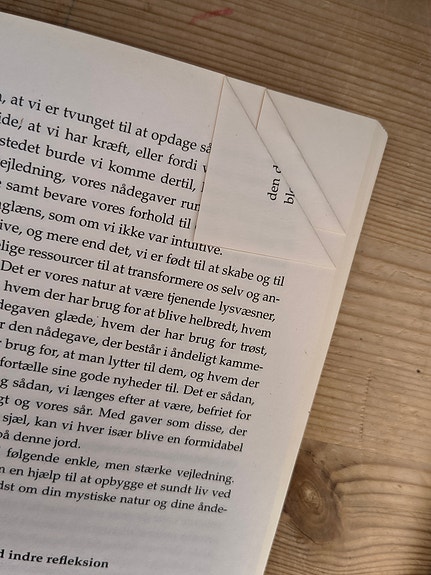 , at vi er tvunget til at opdage så
ide, at vi har kræft, eller fordi v
stedet burde vi komme dertil,
ejledning, vores nådegaver run
e samt bevare vores forhold til
nglæns, som om vi ikke var intuitive.
ive, og mere end det, vi er født til at skabe og til
elige ressourcer til at transformere os selv og an-
Det er vores natur at være tjenende lysvæsner,
hvem der har brug for at blive helbredt, hvem
degaven glæde, hvem der har brug for trøst,
r den nådegave, der består i åndeligt kamme-
r brug for, at man lytter til dem, og hvem der
fortælle sine gode nyheder til. Det er sådan,
g sådan, vi længes efter at være, befriet for
gt og vores sår. Med gaver som disse, der
sjæl, kan vi hver især blive en formidabel
på denne jord.
følgende enkle, men stærke vejledning.
m en hjælp til at opbygge et sundt liv ved
dst om din mystiske natur og dine ånde-
d indre refleksion
den d
ble